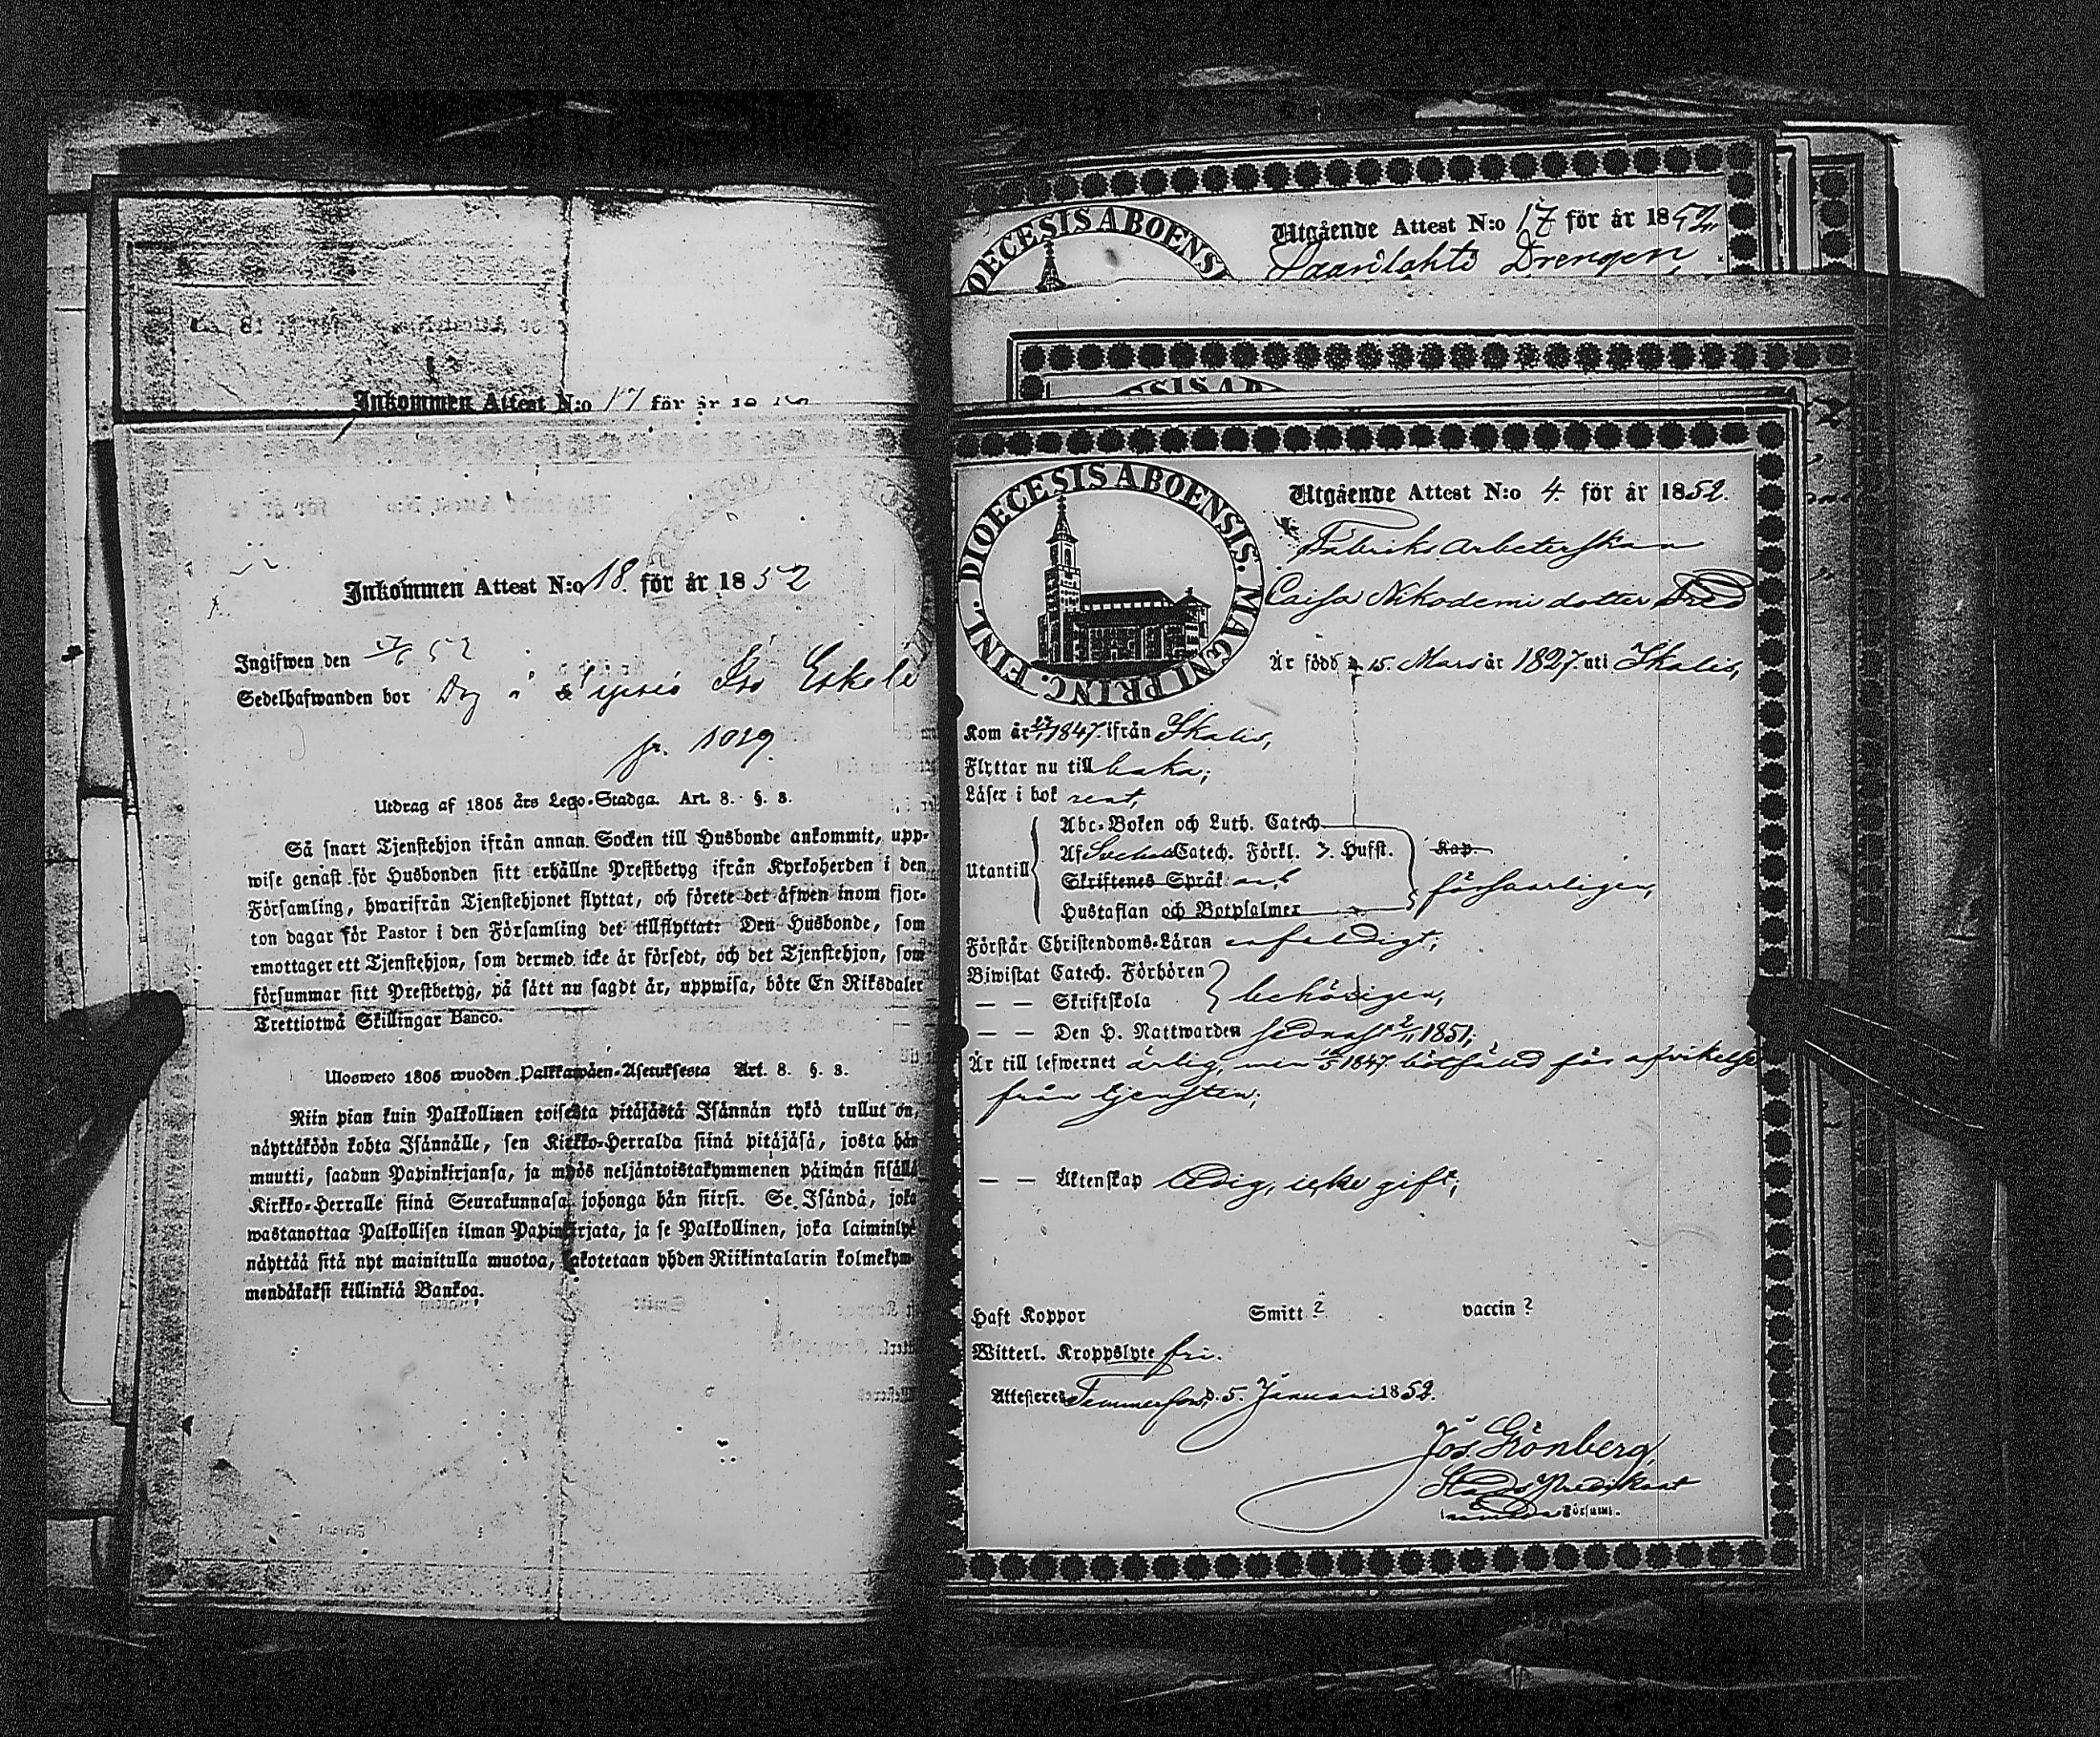 Inkommen Attest N:o 17 för år 18
Inkommen Attest N:o 18. för år 1852
Ingifwen den 52
Sedelhafwanden bor Drg i
fr. 1029.
Utdrag af 1805 års Lego-Stadga. Art. 8. §. 8.
Så snart Tjenstehjon ifrån annan Socken till Husbonde ankommit, upp-
wise genast för Husbonden sitt erhållne Prestbetyg ifrån Kyrkoherden i den
Församling, hwarifrån Tjenstehjonet flyttat, och förete det äfwen inom fjor-
ton dagar för Pastor i den Församling det tillflyttat: Den Husbonde, som
emottager ett Tjenstehjon, som dermed icke är försedt, och det Tjenstehjon, som
försummar sitt Prestbetyg, på sätt nu sagdt är, uppwisa, böte En Riksdaler
Trettiotwå Skillingar Banco.
Ulosweto 1805 wuoden Palkkawäen-Asetuksesta Art. 8. §. 8.
Niin pian kuin Palkollinen toisesta pitäjästä Isännän tykö tullut on,
näyttäköön kohta Isännälle, sen Kirkko-Herralda siinä pitäjäsä, josta hän
muutti, saadun Papinkirjansa, ja myös neljäntoistakymmenen päiwän sisällä
Kirkko-Herralle siinä Seurakunnasa johonga hän siirsi. Se Isändä, joka
wastanottaa Palkollisen ilman Papinkirjata, ja se Palkollinen, joka laiminlyö
näyttää sitä nyt mainitulla muotoa, sakotetaan yhden Riikintalarin kolmekym-
mendäkaksi killinkiä Bankoa.
DIOECESIS ABOENSIS
Utgående Attest N:o 17 för år 1852.
Paarilahti Drengen
DIOECESIS ABOENSIS. MAGNI PRINC. FINL.
Utgående Attest N:o 4 för år 1852.
Fabriks Arbeterskan
Caisa Nikodemi dotter
Är född d. 15. Mars år 1827. uti Ikalis,
Kom år 1847. ifrån Ikalis,
Flyttar nu tillbaka;
Läser i bok rent,
Utantill
Abc-Boken och Luth. Catech.
Af Svebelii Catech. Förkl. 7. Hufst.
Kap.
Skriftenes Språk
försvarligen,
Hustaflan och Botpsalmer
Förstår Christendoms-Läran enfaldigt;
Biwistat Catech. Förhören
— — Skriftskola
behörigen,
— — Den H. Nattwarden sednast 2/11 1851;
Är till lefwernet ärlig, men 1847. bötfäld för afvikelse
från tjensten;
— — Äktenskap ledig, icke gift;
Haft Koppor Smitt ? vaccin ?
Witterl. Kroppslyte fri.
Attesteres Tammerfors d. 5. Januari 1852.
Jos. Grönberg,
Stads Predikant
Förf.